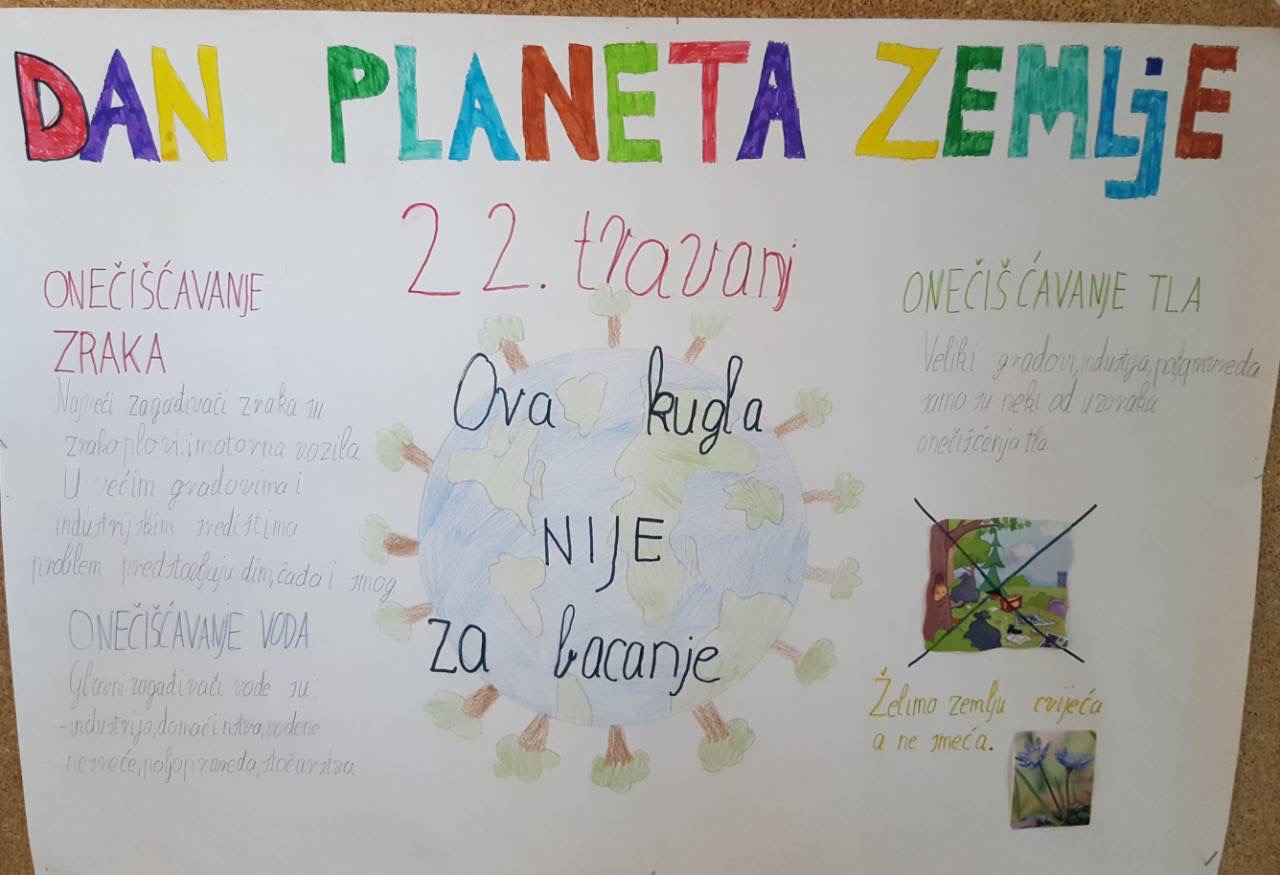 DAN PLANETA ZEMLJE
22. travanj
ONEČIŠĆAVANJE
ZRAKA
Najveći zagađivači zraka su
zrakoplovi i motorna vozila.
U većim gradovima i
industrijskim središtima
problem predstavljaju dim, čađa i smog.
ONEČIŠĆAVANJE VODA
Glavni zagađivači vode su:
-industrija, domaćinstva, vodene
nesreće, poljoprivreda, stočarstvo.
Ova kugla
NIJE
za bacanje
ONEČIŠĆAVANJE TLA
Veliki gradovi, industrija, poljoprivreda
samo su neki od uzoraka
onečišćenja tla.
Želimo zemlju cvijeća
a ne smeća.